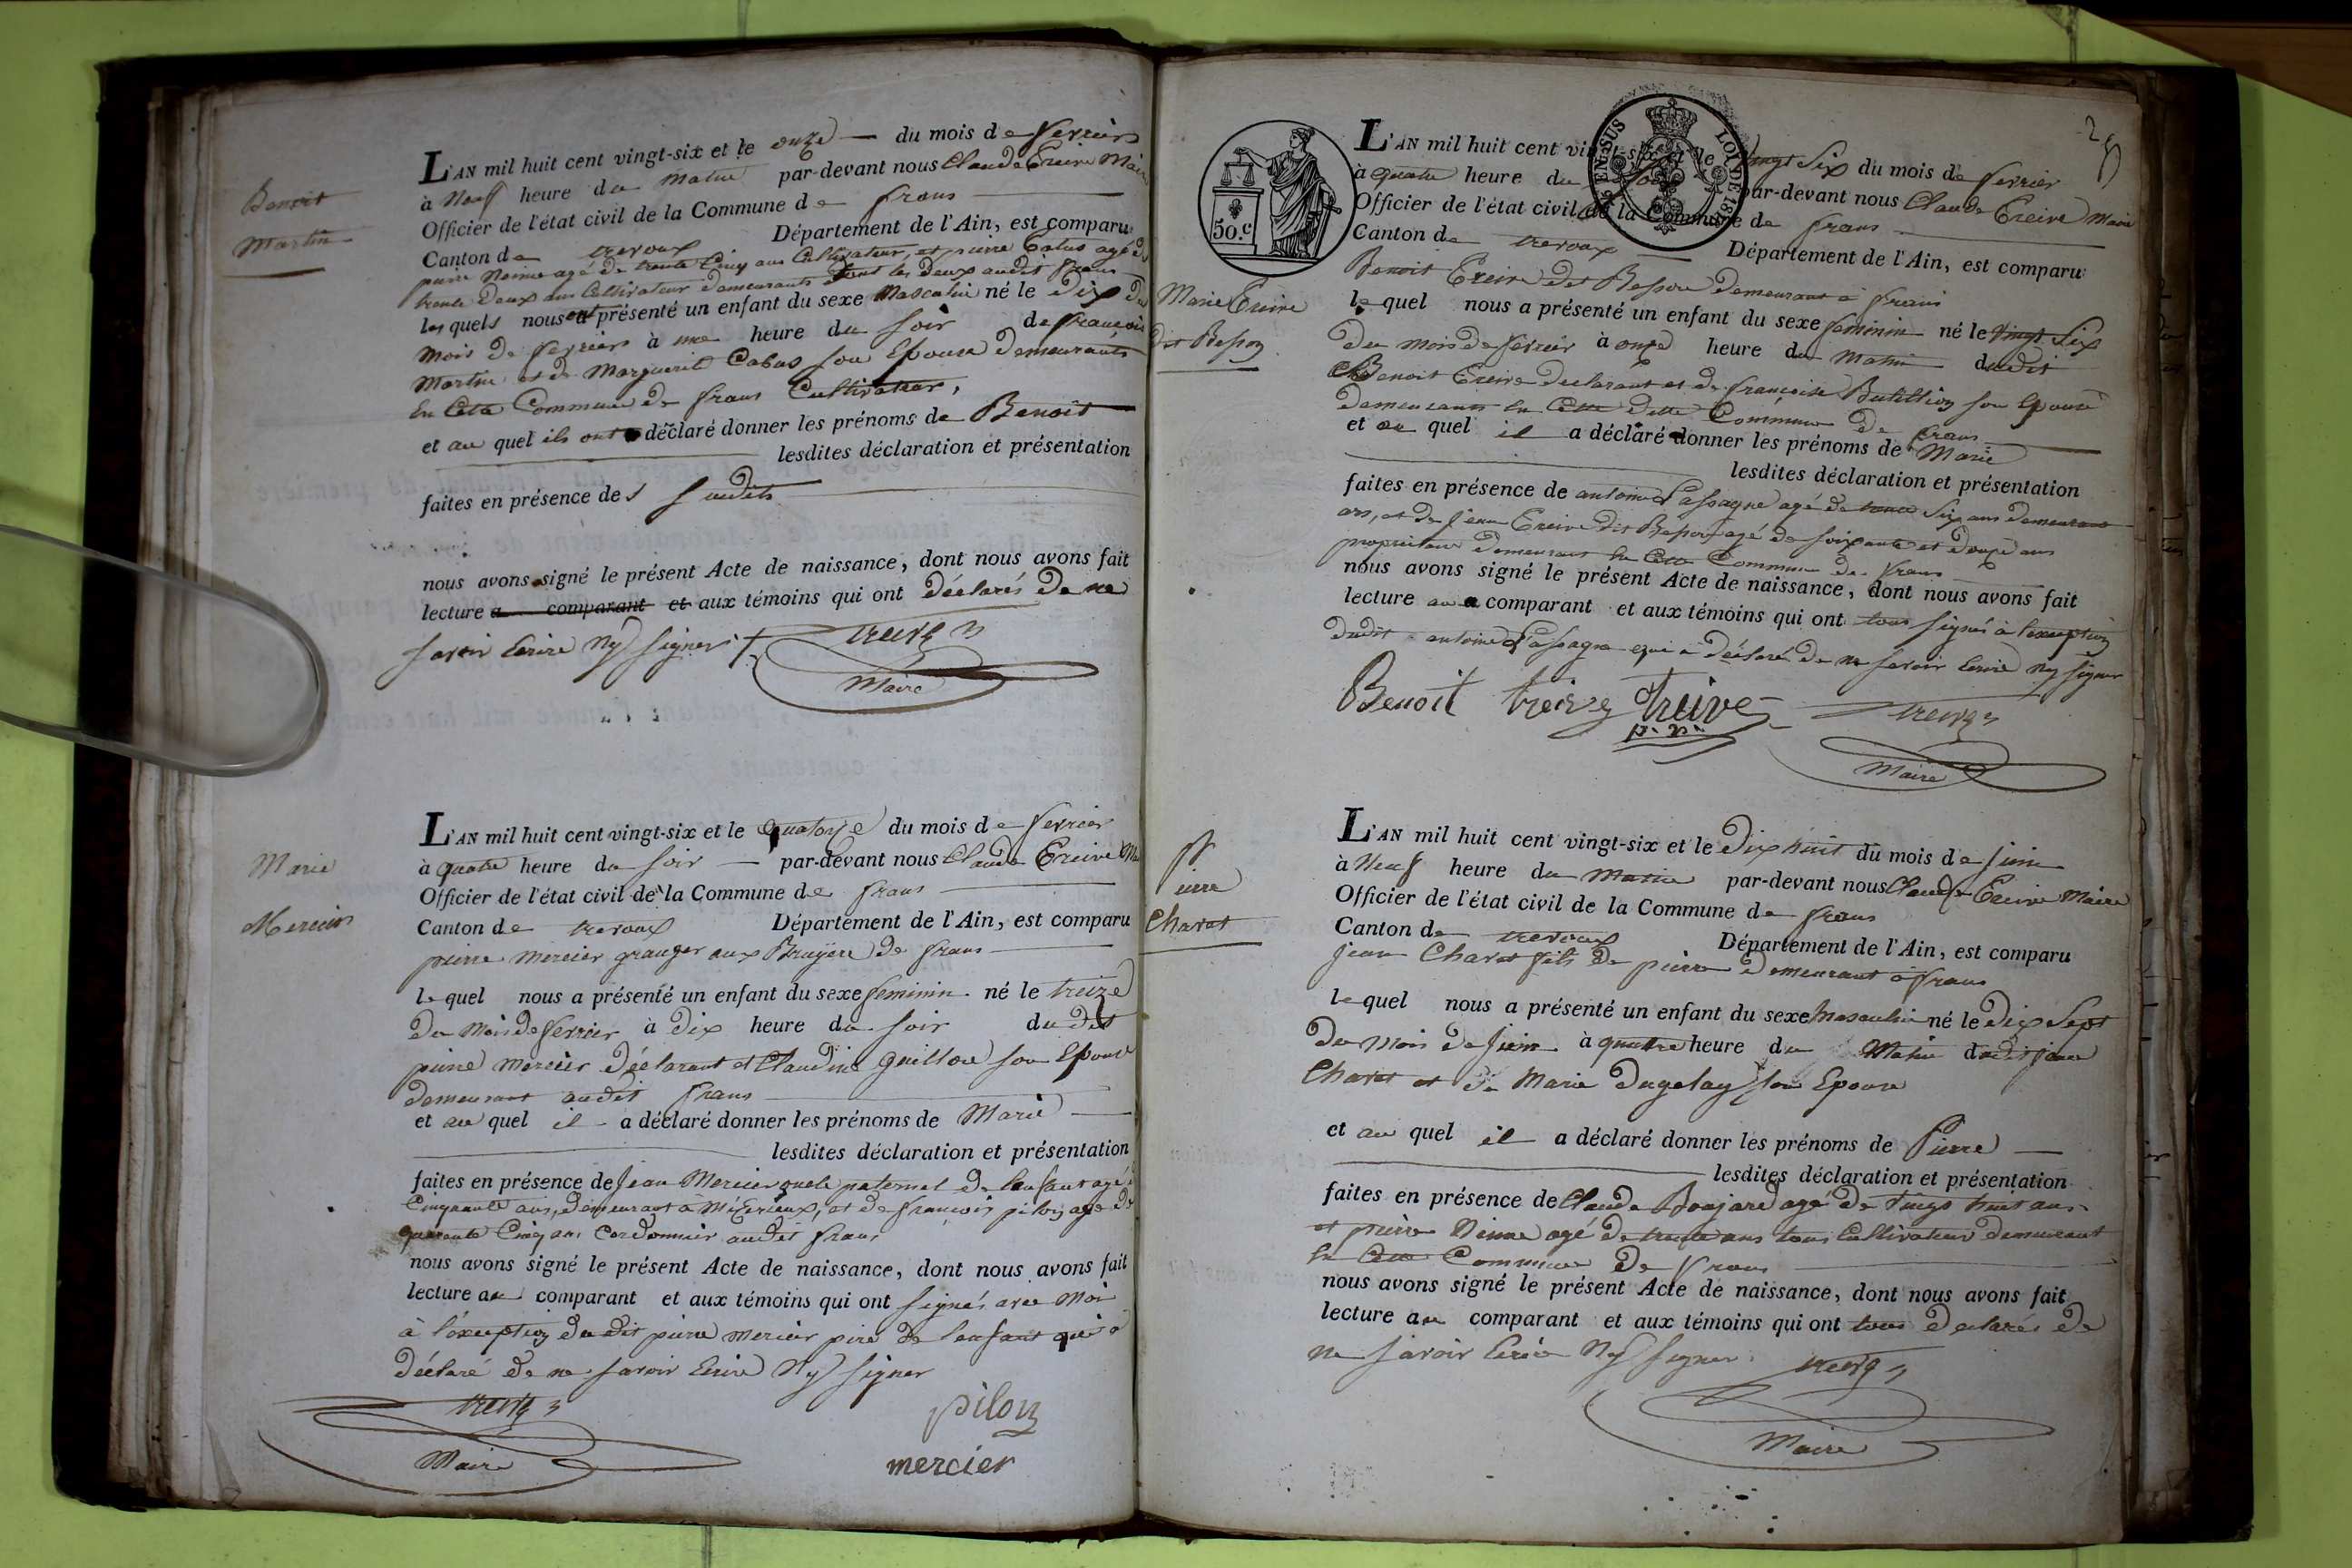 Benoit
Martin
L'AN mil huit cent vingt-six et le onze du mois de fevrier
à Neuf heure du Matin par-devant nous Claude Treive Maire
Officier de l'état civil de la Commune de frans
Canton de trevoux Département de l'Ain, est comparu
pierre agé de trente Cinq ans Cultivateur, et pierre Cabus agé de
trente deux ans Cultivateur demeurants tout les deux audit frans
lesquels nous ont présenté un enfant du sexe Masculin né le dix du
mois de fevrier à une heure du soir de francois
Martin et de Marguerite Cabus son Epouse demeurants
En Cette Commune de frans Cultivateur,
et au quel ils ont déclaré donner les prénoms de Benoit
lesdites déclaration et présentation
faites en présence des sudits
nous avons signé le présent Acte de naissance, dont nous avons fait
lecture a comparant et aux témoins qui ont déclarés de ne
savoir Ecrire Ny signer
treive
Maire
Marie
Mercier
L'AN mil huit cent vingt-six et le quatorze du mois de fevrier
à quatre heure du soir par-devant nous Claude Treive
Officier de l'état civil de la Commune de frans
Canton de trevoux Département de l'Ain, est comparu
pierre mercier granger aux Bruyere de frans
lequel nous a présenté un enfant du sexe feminin né le treize
du Mois de fevrier à dix heure du soir dudit
pierre mercier déclarant et Claudine guillou son Epouse
demeurant audit frans
et au quel il a déclaré donner les prénoms de Marie
lesdites déclaration et présentation
faites en présence de Jean Mercier oncle paternel de l'enfant agé
Cinquante ans, demeurant à Mizerieux, et de francois pilon agé de
quarante Cinq ans Cordonnier audit frans
nous avons signé le présent Acte de naissance, dont nous avons fait
lecture au comparant et aux témoins qui ont signés avec Moi
à l'exception dudit pierre mercier pere de l'enfant qui a
déclaré de ne savoir Ecrire Ny signer
treive
Maire
pilon
mercier
25
50.c
EN SUS
LOI DE 18
Marie Treive
dit Besson
L'AN mil huit cent vingt-six et le vingt Six du mois de fevrier
à quatre heure du soir par-devant nous Claude Treive Maire
Officier de l'état civil de la Commune de frans
Canton de trevoux Département de l'Ain, est comparu
Benoit Treive dit Besson demeurant à frans
lequel nous a présenté un enfant du sexe feminin né le vingt Six
du mois de fevrier à onze heure du Matin dudit
Benoit Treive declarant et de francoise Butillion son Epouse
demeurants En Cette ditte Commune de frans
et au quel il a déclaré donner les prénoms de Marie
lesdites déclaration et présentation
faites en présence de antoine Lassagne agé de six ans demeurant
ars, et de Jean Treive dit Besson agé de soixante et douze ans
proprietaire demeurant En Cette Commune de frans
nous avons signé le présent Acte de naissance, dont nous avons fait
lecture au comparant et aux témoins qui ont tous signés à l'exception
dudit antoine Lassagne qui a déclaré de ne savoir Ecrire Ny signer
Benoit treive treive treive
Maire
Pierre
Charet
L'AN mil huit cent vingt-six et le Dix huit du mois de juin
à Neuf heure du matin par-devant nous Claude Treive Maire
Officier de l'état civil de la Commune de frans
Canton de trevoux Département de l'Ain, est comparu
jean Charet fils de pierre demeurant à frans
lequel nous a présenté un enfant du sexe masculin né le dix Sept
du mois de juin à quatre heure du Matin dudit jean
Charet et de Marie dugelay son Epouse
et au quel il a déclaré donner les prénoms de Pierre
lesdites déclaration et présentation
faites en présence de Claude Boujard agé de vingt huit ans
et pierre agé de trente ans tous Cultivateur demeurant
En Cette Commune de frans
nous avons signé le présent Acte de naissance, dont nous avons fait
lecture au comparant et aux témoins qui ont tous declarés de
ne savoir Ecrire Ny signer.
treive
Maire